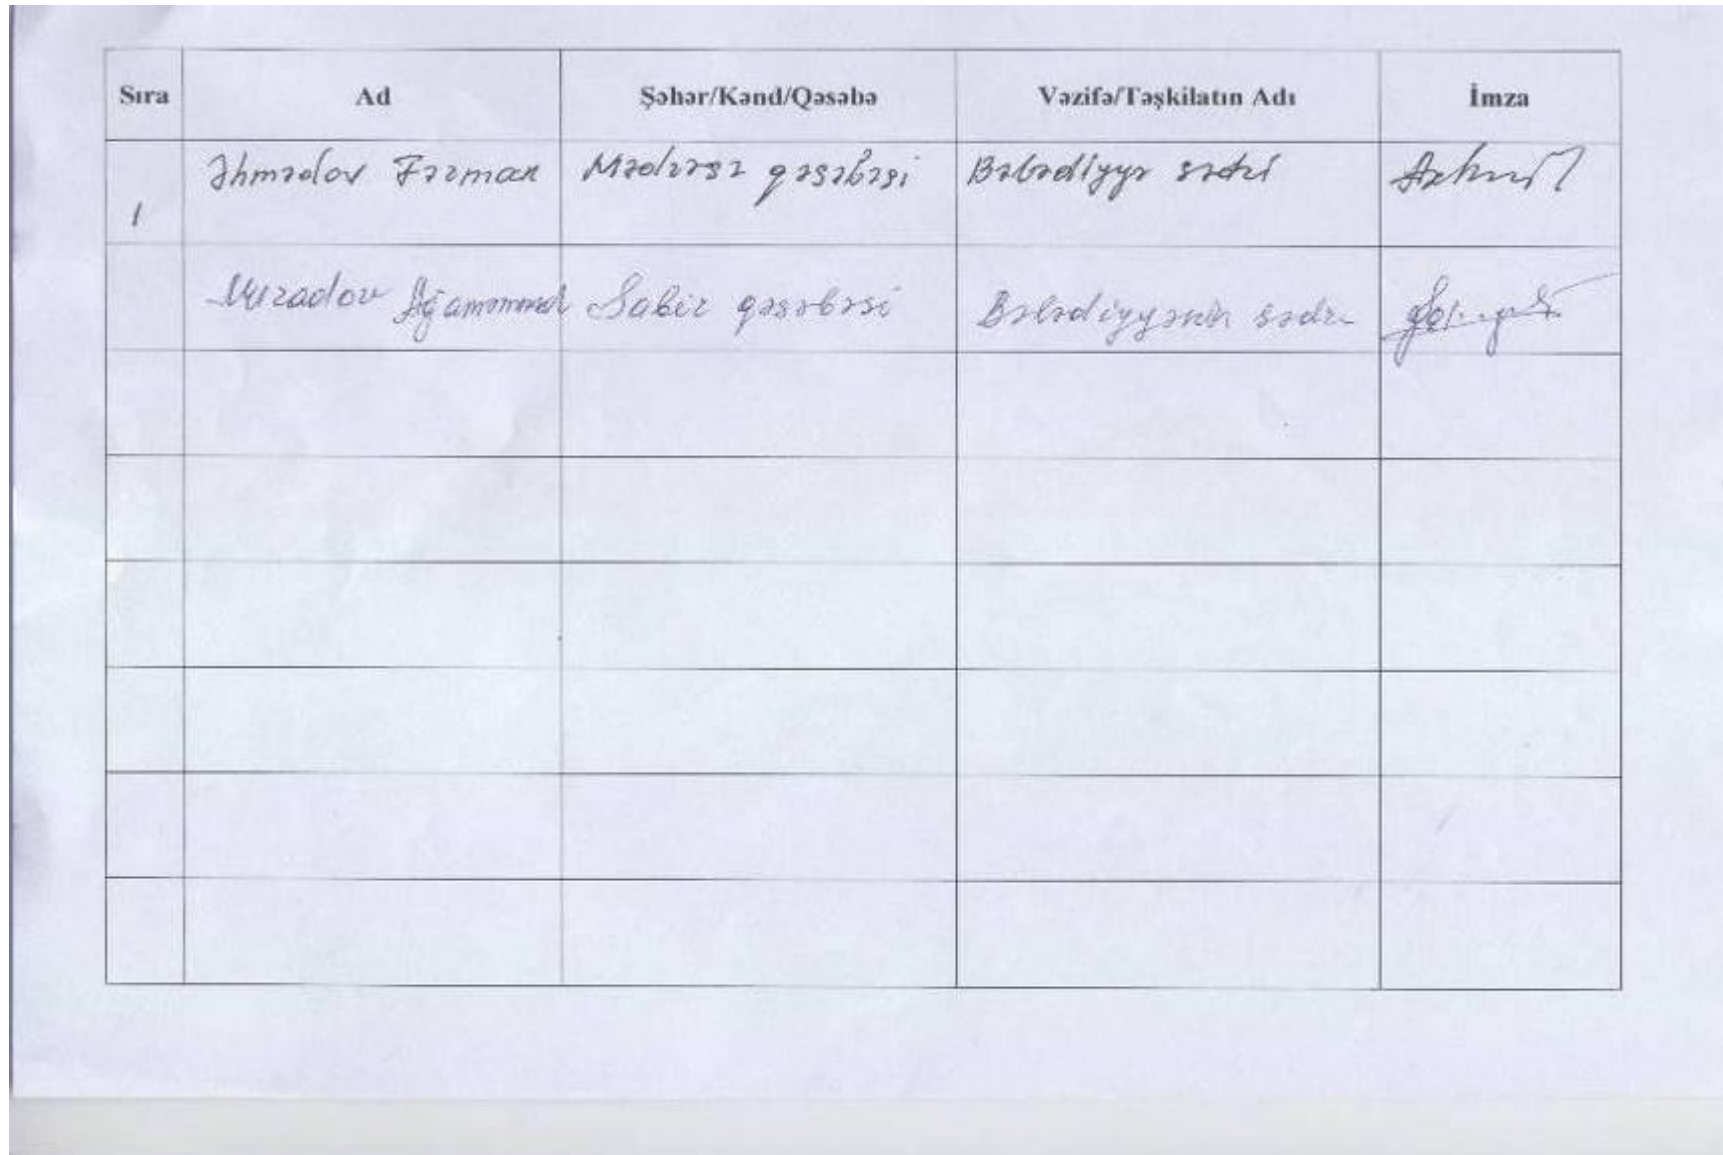 Sıra Ad Şəhər/Kənd/Qəsəbə Vəzifə/Təşkilatın Adı İmza
1 Əhmədov Fərman Mədrəsə qəsəbəsi Bələdiyyə sədri
Muradov Ağaməmməd Sabir qəsəbəsi Bələdiyyənin sədri